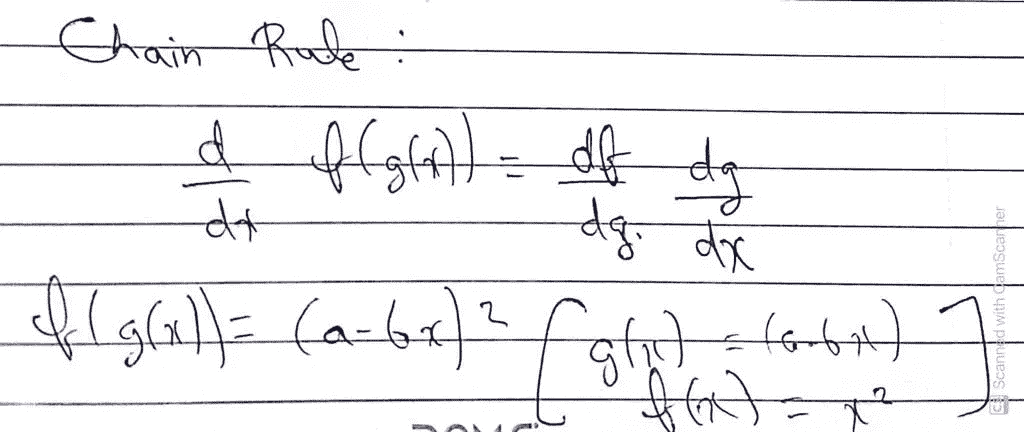 Chain Rule :
d/dx f(g(x)) = df/dg . dg/dx
f(g(x)) = (a-bx)² [ g(x) = (a-bx)
f(x) = x² ]
CS Scanned with CamScanner